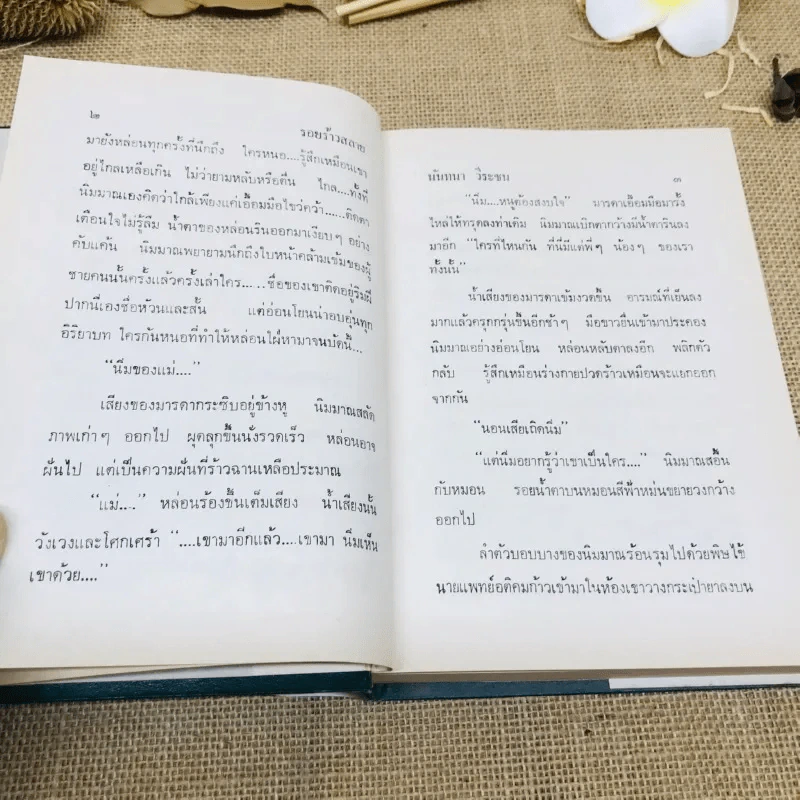 ๒
รอยร้าวสลาย
มายังหล่อนทุกครั้งที่นึกถึง ใครหนอ....รู้สึกเหมือนเขา
อยู่ไกลเหลือเกิน ไม่ว่ายามหลับหรือตื่น ไกล....ทั้งที่
นิมมาณเองคิดว่าใกล้เพียงแค่เอื้อมมือไขว่คว้า.....ติดตา
เตือนใจไม่รู้ลืม น้ำตาของหล่อนรินออกมาเงียบๆ อย่าง
คับแค้น นิมมาณพยายามนึกถึงใบหน้าคล้ามเข้มของผู้
ชายคนนั้นครั้งแล้วครั้งเล่าใคร.....ชื่อของเขาติดอยู่ริมฝี
ปากนี่เองชื่อห้วนและสั้น แต่อ่อนโยนน่าอบอุ่นทุก
อิริยาบท ใครกันหนอที่ทำให้หล่อนใฝ่หามาจนบัดนี้...
“นิ่มของแม่....”
เสียงของมารดากระซิบอยู่ข้างหู นิมมาณสลัด
ภาพเก่าๆ ออกไป ผุดลุกขึ้นนั่งรวดเร็ว หล่อนอาจ
ฝันไป แต่เป็นความฝันที่ร้าวฉานเหลือประมาณ
“แม่....” หล่อนร้องขึ้นเต็มเสียง น้ำเสียงนั้น
วังเวงและโศกเศร้า “....เขามาอีกแล้ว....เขามา นิ่มเห็น
เขาด้วย....”
นันทนา วีระชน
๓
“นิ่ม....หนูต้องสงบใจ” มารดาเอื้อมมือมารั้ง
ไหล่ให้ทรุดลงท่าเดิม นิมมาณเบิกตากว้างมีน้ำตารินลง
มาอีก “ใครที่ไหนกัน ที่นี่มีแต่พี่ๆ น้องๆ ของเรา
ทั้งนั้น”
น้ำเสียงของมารดาเข้มงวดขึ้น อารมณ์ที่เย็นลง
มากแล้วครุกกรุ่นขึ้นอีกช้าๆ มือขาวยื่นเข้ามาประคอง
นิมมาณอย่างอ่อนโยน หล่อนหลับตาลงอีก พลิกตัว
กลับ รู้สึกเหมือนร่างกายปวดร้าวเหมือนจะแยกออก
จากกัน
“นอนเสียเถิดนิ่ม”
“แต่นิ่มอยากรู้ว่าเขาเป็นใคร....” นิมมาณสอื้น
กับหมอน รอยน้ำตาบนหมอนสีฟ้าหม่นขยายวงกว้าง
ออกไป
ลำตัวบอบบางของนิมมาณร้อนรุมไปด้วยพิษไข้
นายแพทย์อติคมก้าวเข้ามาในห้องเขาวางกระเป๋ายาลงบน